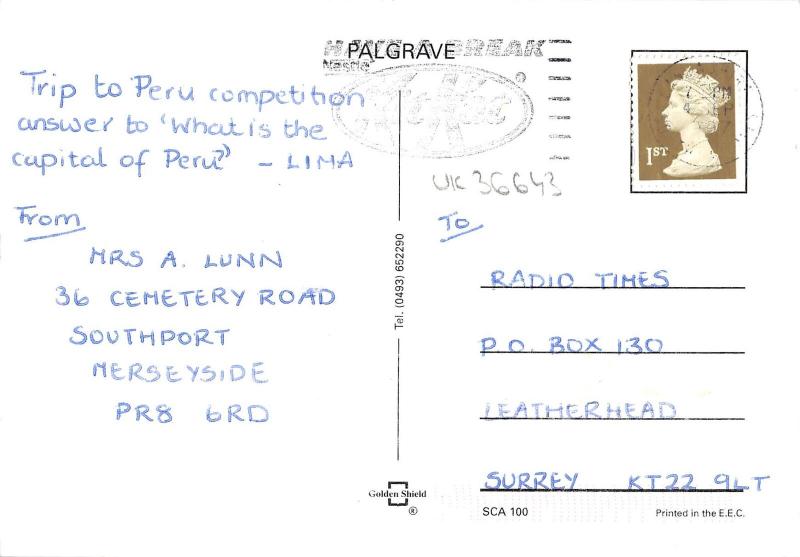 PALGRAVE
HAVE A BREAK
Nestlé
KitKat
®
PM
1ST
Trip to Peru competition
answer to 'What is the
capital of Peru?' - LIMA
UK 36643
From
MRS A. LUNN
36 CEMETERY ROAD
SOUTHPORT
MERSEYSIDE
PR8 6RD
Tel. (0493) 652290
To
RADIO TIMES
P.O. BOX 130
LEATHERHEAD
SURREY KT22 9LT
Golden Shield
®
SCA 100
Printed in the E.E.C.